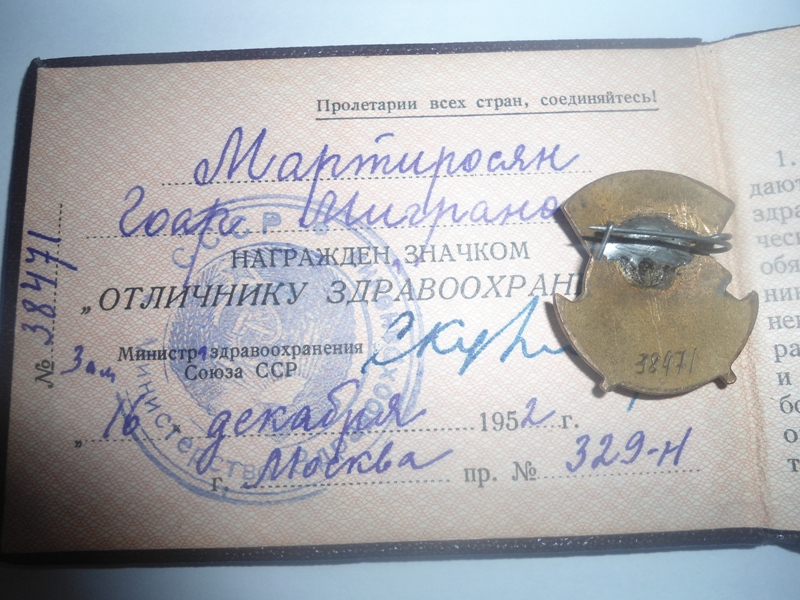 Пролетарии всех стран, соединяйтесь!
Мартиросян
Гоар Миграно
НАГРАЖДЕН ЗНАЧКОМ
„ОТЛИЧНИКУ ЗДРАВООХРАНЕ
Зам Министр здравоохранения
Союза ССР
„16 декабря 1952 г.
г. Москва пр. № 329-Н
№ 38471
СССР
Министерство
38471
1.
дают
здра
ческ
обя
ник
нен
ра
и
бо
о
т